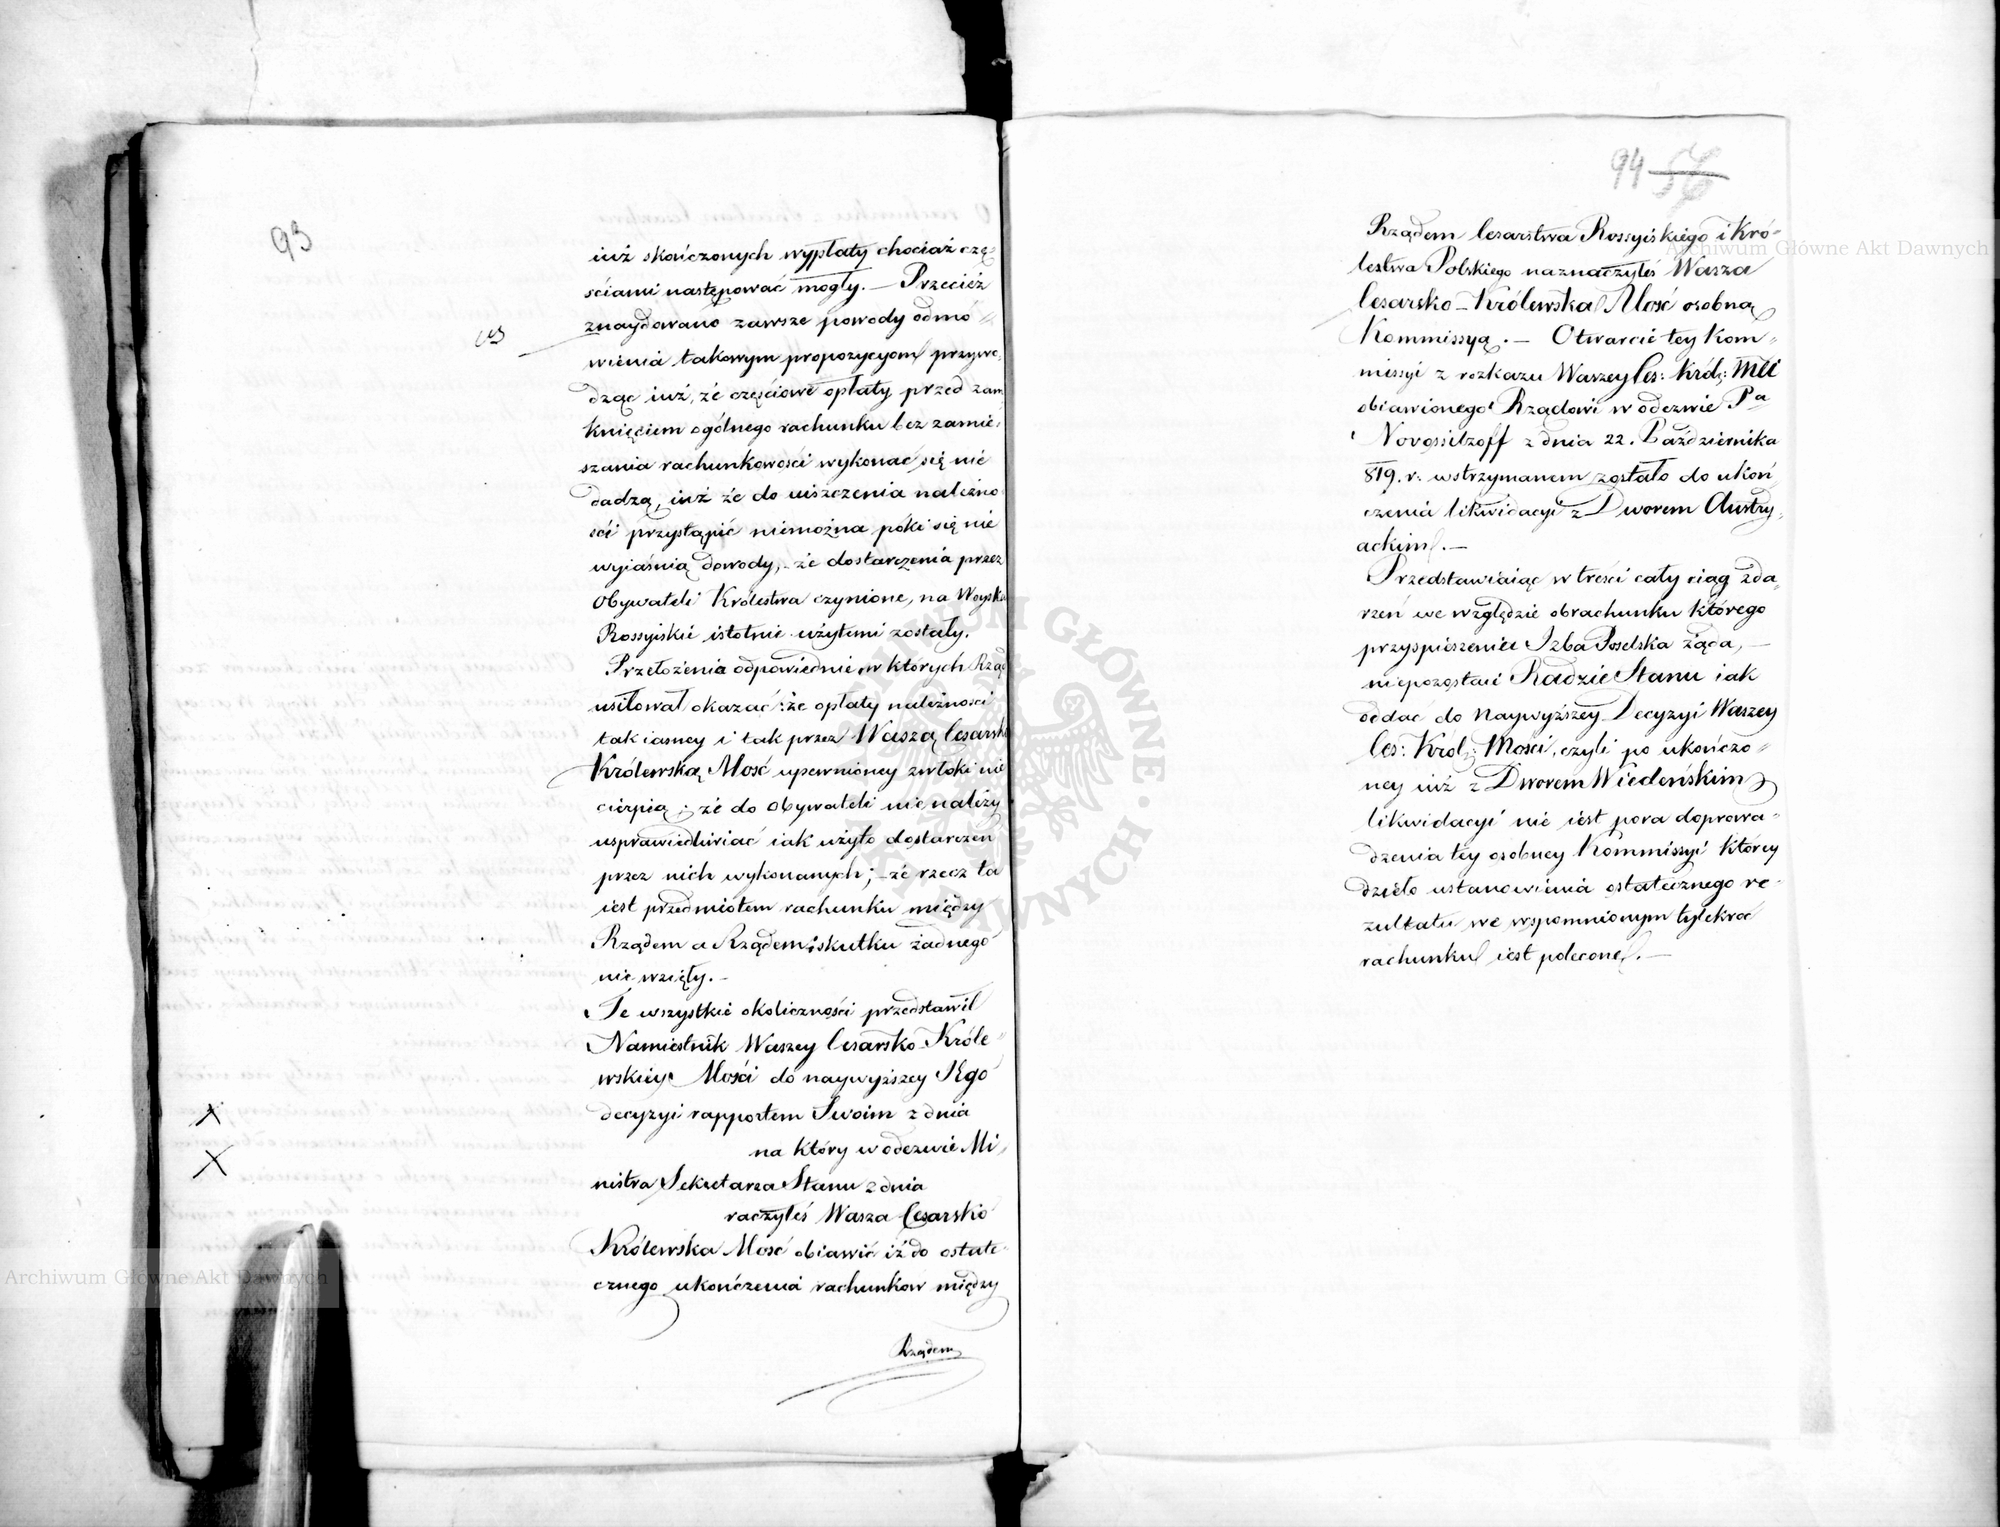 93
iuż skończonych wypłaty chociaż czę-
ściami następować mogły. — Przecież
znaydowano zawsze powody odmó-
wienia takowym propozycyom przywo-
dząc iuż, że częściowe opłaty przed zam-
knięciem ogólnego rachunku bez zamie-
szania rachunkowości wykonać się nie
dadzą, iuż że do uiszczenia należno-
ści przystąpić niemożna póki się nie
wyiaśnią dowody, że dostarczenia przez
Obywateli Królestwa czynione, na Woysko
Rossyiskie istotnie użytemi zostały.
Przełożenia odpowiednie w których Rząd
usiłował okazać że opłaty należności
tak iasney i tak przez Waszą Cesarsko
Królewską Mość upewnioney zwłoki nie
cierpią; że do Obywateli nie należy
usprawiedliwiać iak użyto dostarczeń
przez nich wykonanych; że rzecz ta
iest przedmiotem rachunku między
Rządem a Rządem; skutku żadnego
nie wzięły. —
Te wszystkie okoliczności przedstawił
Namiestnik Waszey Cesarsko-Króle-
wskiey Mości do naywyższey Jego
decyzyi rapportem Swoim z dnia
na który w odezwie Mi-
nistra Sekretarza Stanu z dnia
raczyłeś Wasza Cesarsko
Królewska Mość obiawić iż do ostate-
cznego ukończenia rachunków między
Rządem
94 56
Rządem Cesarstwa Rossyiskiego i Kró-
lestwa Polskiego naznaczyłeś Wasza
Cesarsko-Królewska Mość osobną
Kommissyą. — Otwarcie tey Kom-
missyi z rozkazu Waszey Ces: Król: Mci
obiawionego Rządowi w odezwie Pa
Novossilzoff z dnia 22. Października
819. r. wstrzymanem zostało do ukoń-
czenia likwidacyi z Dworem Austry-
ackim. —
Przedstawiaiąc w treści cały ciąg zda-
rzeń we względzie obrachunku którego
przyspieszenia Izba Poselska żąda, —
niepozostaie Radzie Stanu iak
oddać do Naywyższey Decyzyi Waszey
Ces: Król: Mości, czyli po ukończo-
ney iuż z Dworem Wiedeńskim
likwidacyi nie iest pora doprowa-
dzenia tey osobney Kommissyi którey
dzieło ustanowienia ostatecznego re-
zultatu we wspomnionym tylekroć
rachunku iest polecone. —
Archiwum Główne Akt Dawnych
Archiwum Główne Akt Dawnych